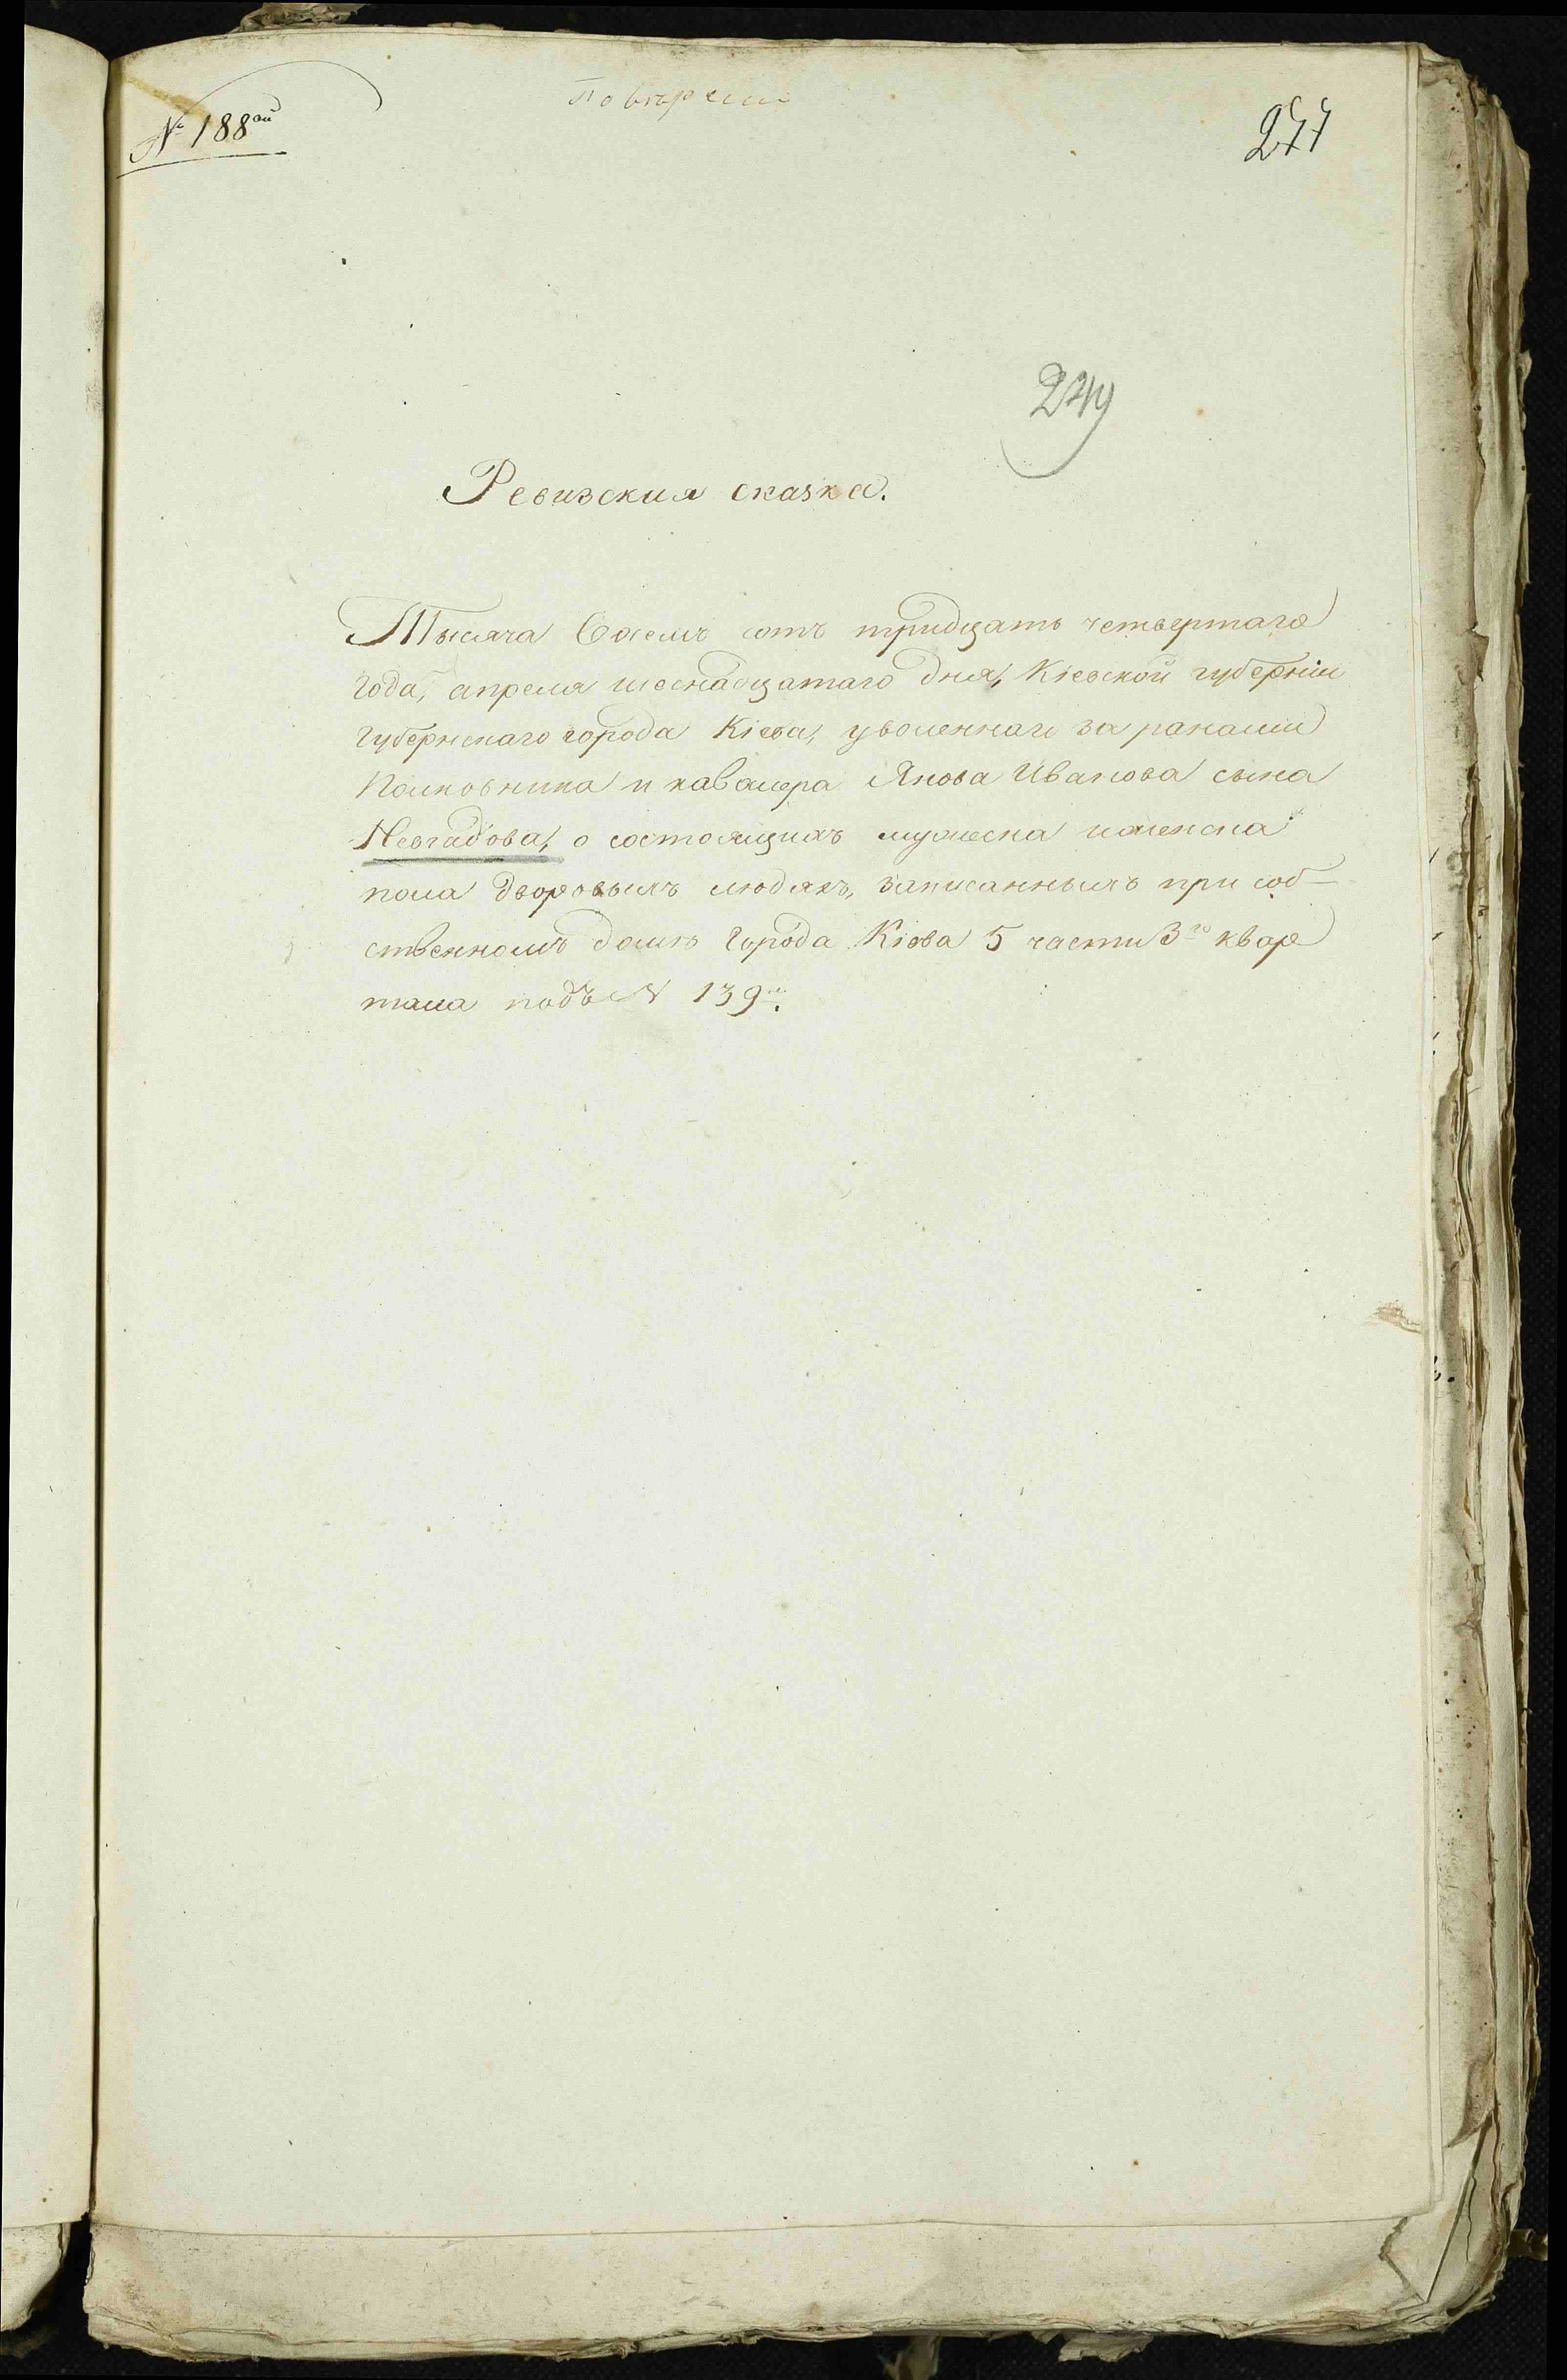 № 188ой
Повѣрены
277
Ревизския сказка.
Тысяча Восемь сотъ тридцать четвертаго
года, апреля шеснадцатаго дня, Кіевской губерніи
губернскаго города Кіева, уволеннаго за ранами
Полковника и кавалера Якова Иванова сына
о состоящихъ мужеска и женска
пола дворовыхъ людяхъ, записанныхъ при соб-
ственномъ домѣ города Кіева 5 части 3го квар
тала подъ № 139м.